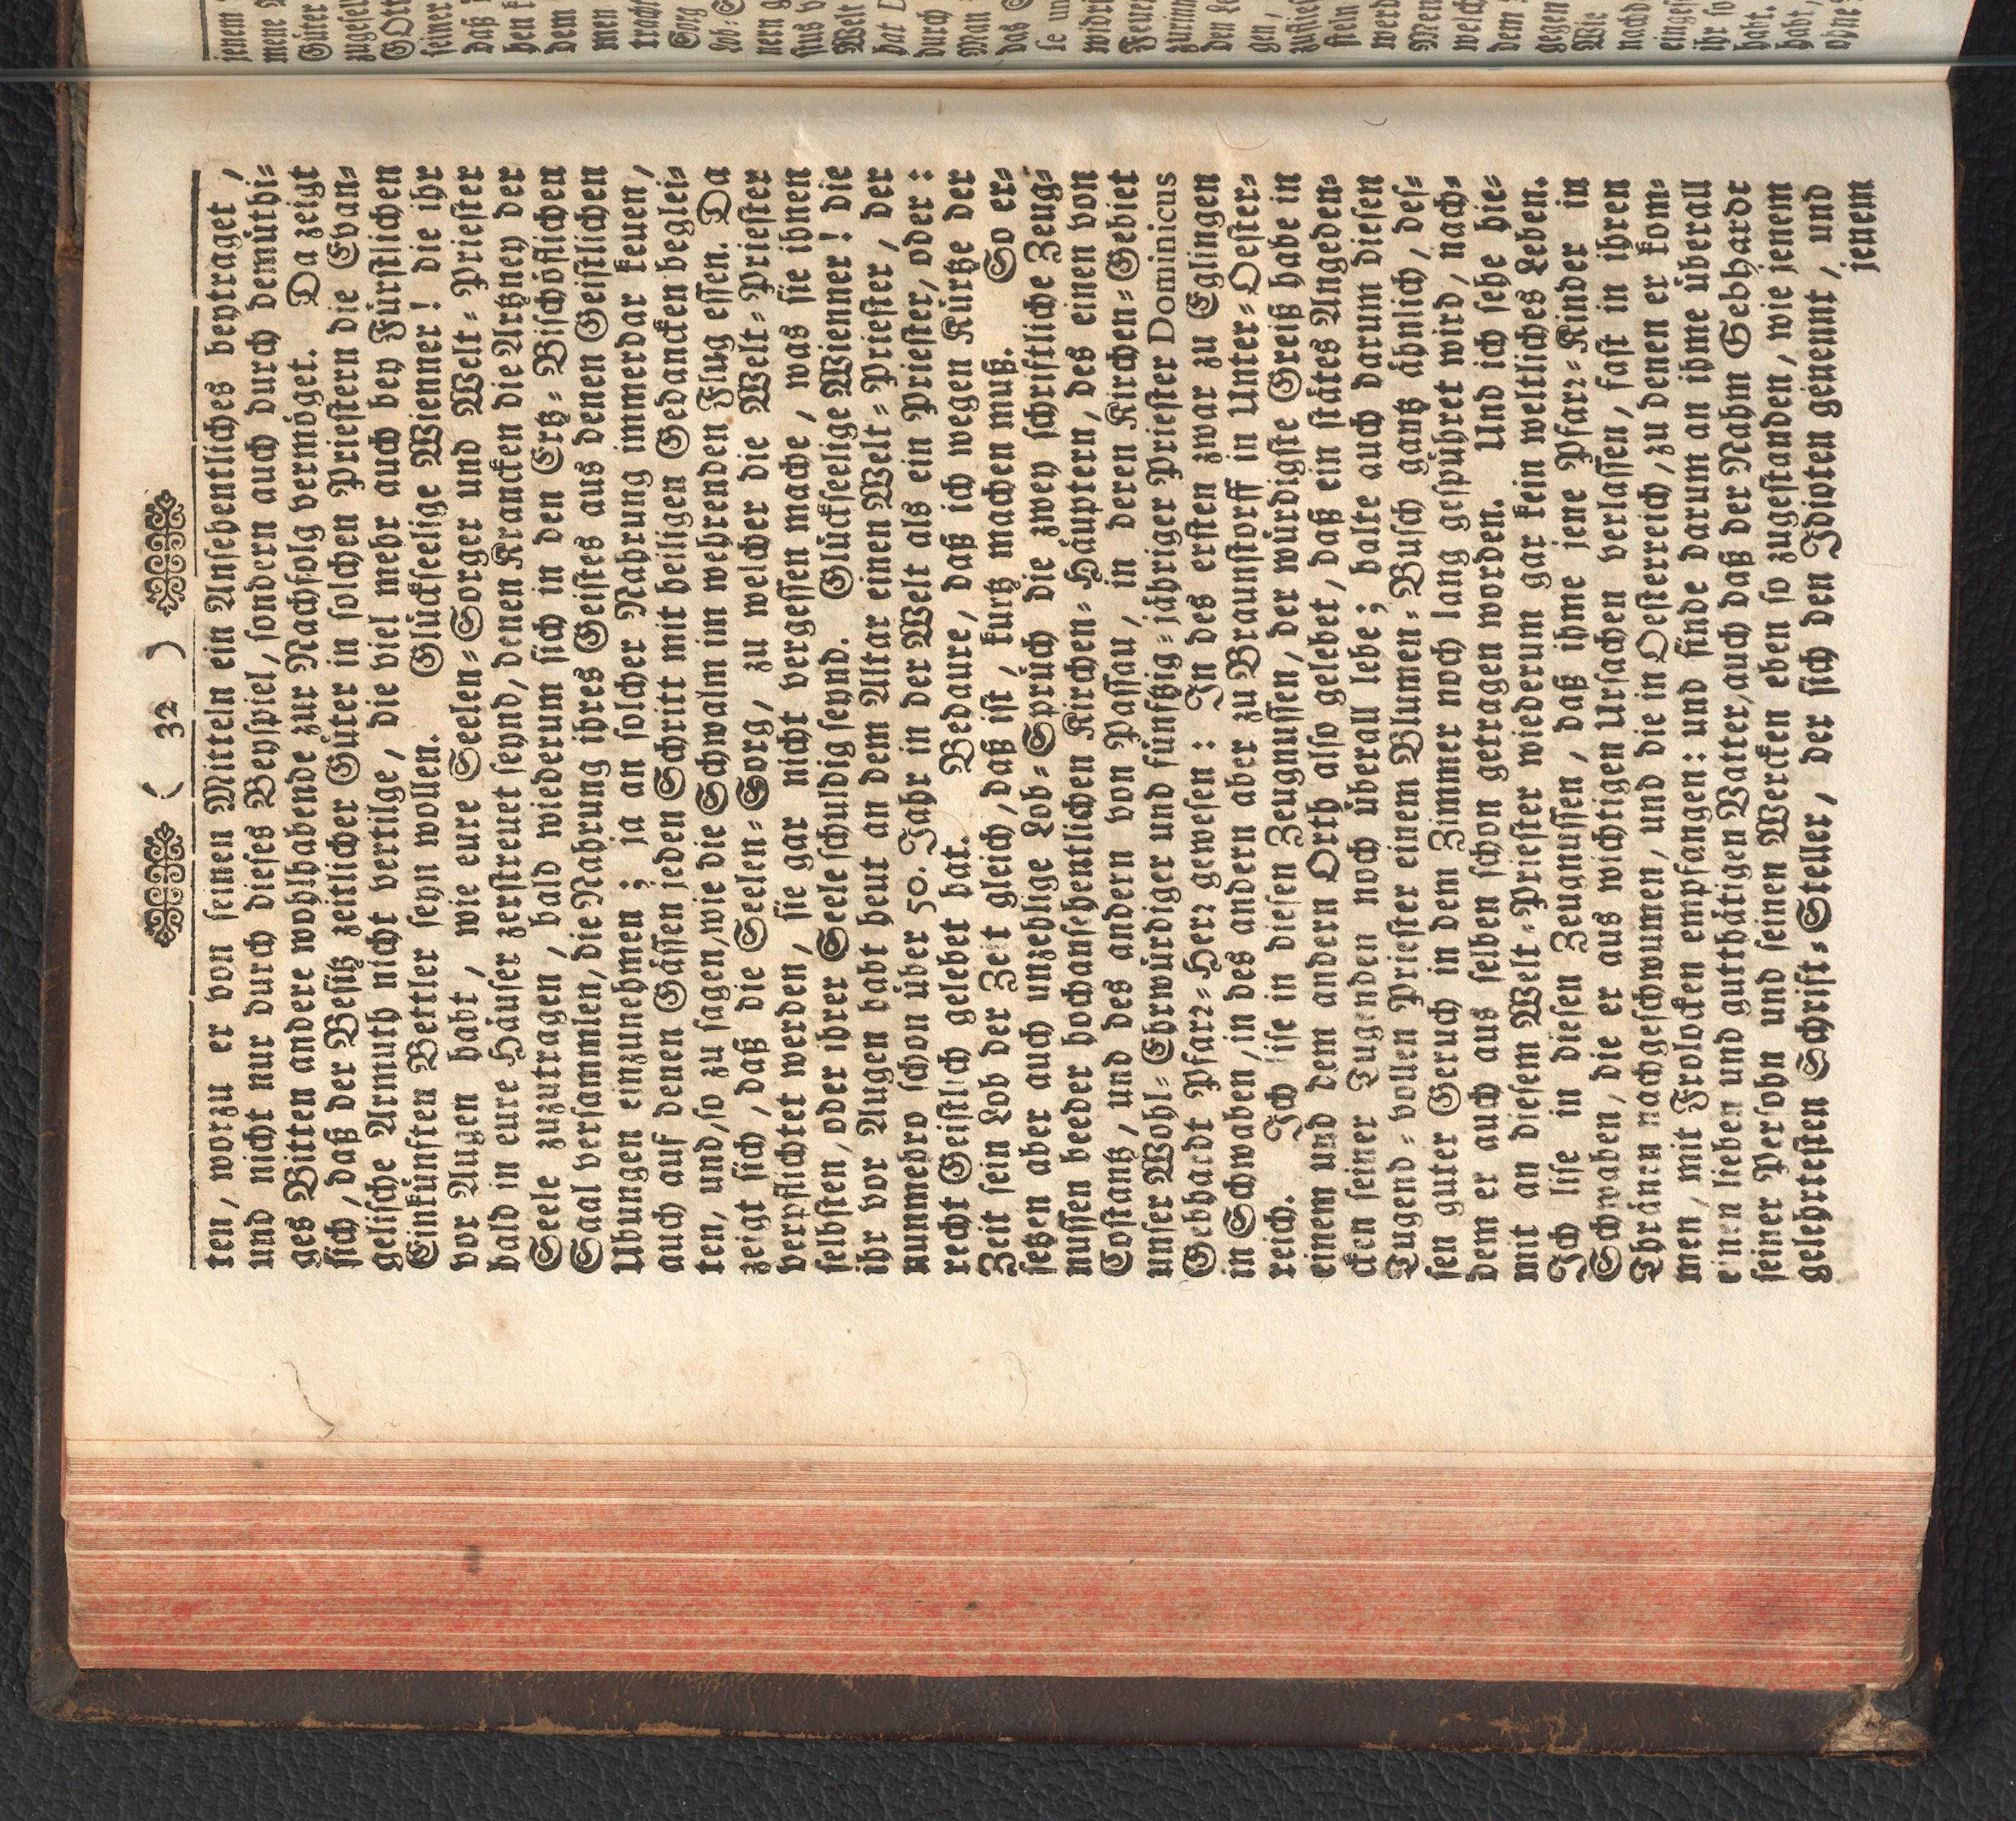 ( 32 )
ten, worzu er von seinen Mitteln ein Ansehentliches beytraget,
und nicht nur durch dieses Beyspiel, sondern auch durch demüthi-
ges Bitten andere wohlhabende zur Nachfolg vermöget. Da zeigt
sich, daß der Besitz zeitlicher Güter in solchen Priestern die Evan-
gelische Armuth nicht vertilge, die viel mehr auch bey Fürstlichen
Einkünften Bettler seyn wollen. Glückseelige Wienner! die ihr
vor Augen habt, wie eure Seelen-Sorger und Welt-Priester
bald in eure Häuser zerstreuet seynd, denen Krancken die Artzney der
Seele zuzutragen, bald wiederum sich in den Ertz-Bischöflichen
Saal versammlen, die Nahrung ihres Geistes aus denen Geistlichen
Ubungen einzunehmen; ja an solcher Nahrung immerdar keuen,
auch auf denen Gässen jeden Schritt mit heiligen Gedancken beglei-
ten, und, so zu sagen, wie die Schwalm im wehrenden Flug essen. Da
zeigt sich, daß die Seelen-Sorg, zu welcher die Welt-Priester
verpflichtet werden, sie gar nicht vergessen mache, was sie ihnen
selbsten, oder ihrer Seele schuldig seynd. Glückseelige Wienner! die
ihr vor Augen habt heut an dem Altar einen Welt-Priester, der
nunmehro schon über 50. Jahr in der Welt als ein Priester, oder:
recht Geistlich gelebet hat. Bedaure, daß ich wegen Kürtze der
Zeit sein Lob der Zeit gleich, daß ist, kurtz machen muß. So er-
setzen aber auch unzehlige Lob-Sprüch die zwey schriftliche Zeug-
nussen beeder hochansehentlichen Kirchen-Häuptern, des einen von
Costantz, und des andern von Passau, in deren Kirchen-Gebiet
unser Wohl-Ehrwürdiger und fünftzig-jähriger Priester Dominicus
Gebhardt Pfarr-Herr gewesen: In des ersten zwar zu Eglingen
in Schwaben, in des andern aber zu Braunstorff in Unter-Oester-
reich. Ich lise in diesen Zeugnussen, der würdigste Greiß habe in
einem und dem andern Orth also gelebet, daß ein stätes Angeden-
cken seiner Tugenden noch überall lebe; halte auch darum diesen
Tugend-vollen Priester einem Blumen-Busch gantz ähnlich, des-
sen guter Geruch in dem Zimmer noch lang gespühret wird, nach-
dem er auch aus selben schon getragen worden. Und ich sehe hie-
mit an diesem Welt-Priester wiederum gar kein weltliches Leben.
Ich lise in diesen Zeugnussen, daß ihme jene Pfarr-Kinder in
Schwaben, die er aus wichtigen Ursachen verlassen, fast in ihren
Thränen nachgeschwummen, und die in Oesterreich, zu denen er kom-
men, mit Frolocken empfangen: und finde darum an ihme überall
einen lieben und gutthätigen Vatter, auch daß der Nahm Gebhardt
seiner Persohn und seinen Wercken eben so zugestanden, wie jenem
gelehrtesten Schrift-Steller, der sich den Idioten genennt, und
jenem